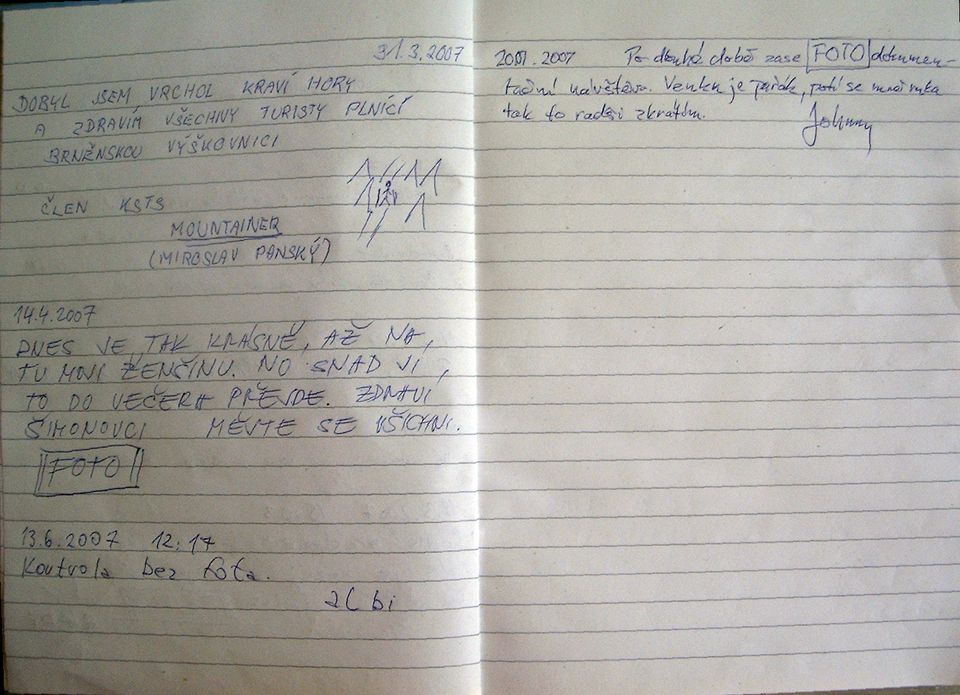 31.3.2007
DOBYL JSEM VRCHOL KRAVÍ HORY
A ZDRAVÍM VŠECHNY TURISTY PLNÍCÍ
BRNĚNSKOU VÝŠKOVNICI
ČLEN KSTS
MOUNTAINER
(MIROSLAV PANSKÝ)
14.4.2007
DNES JE TAK KRÁSNĚ, AŽ NA
TU MOJI ŽENŠINU. NO SNAD JI
TO DO VEČERA PŘEJDE. ZDRAVÍ
ŠIMONOVCI MĚJTE SE VŠICHNI.
FOTO
13.6.2007 12:17
Kontrola bez fota.
albi
2007 Po dlouhé době zase FOTO dokumen-
tační návštěva. Venku je pařák, potí se mně ruka
tak to raději zkrátím.
Johnny